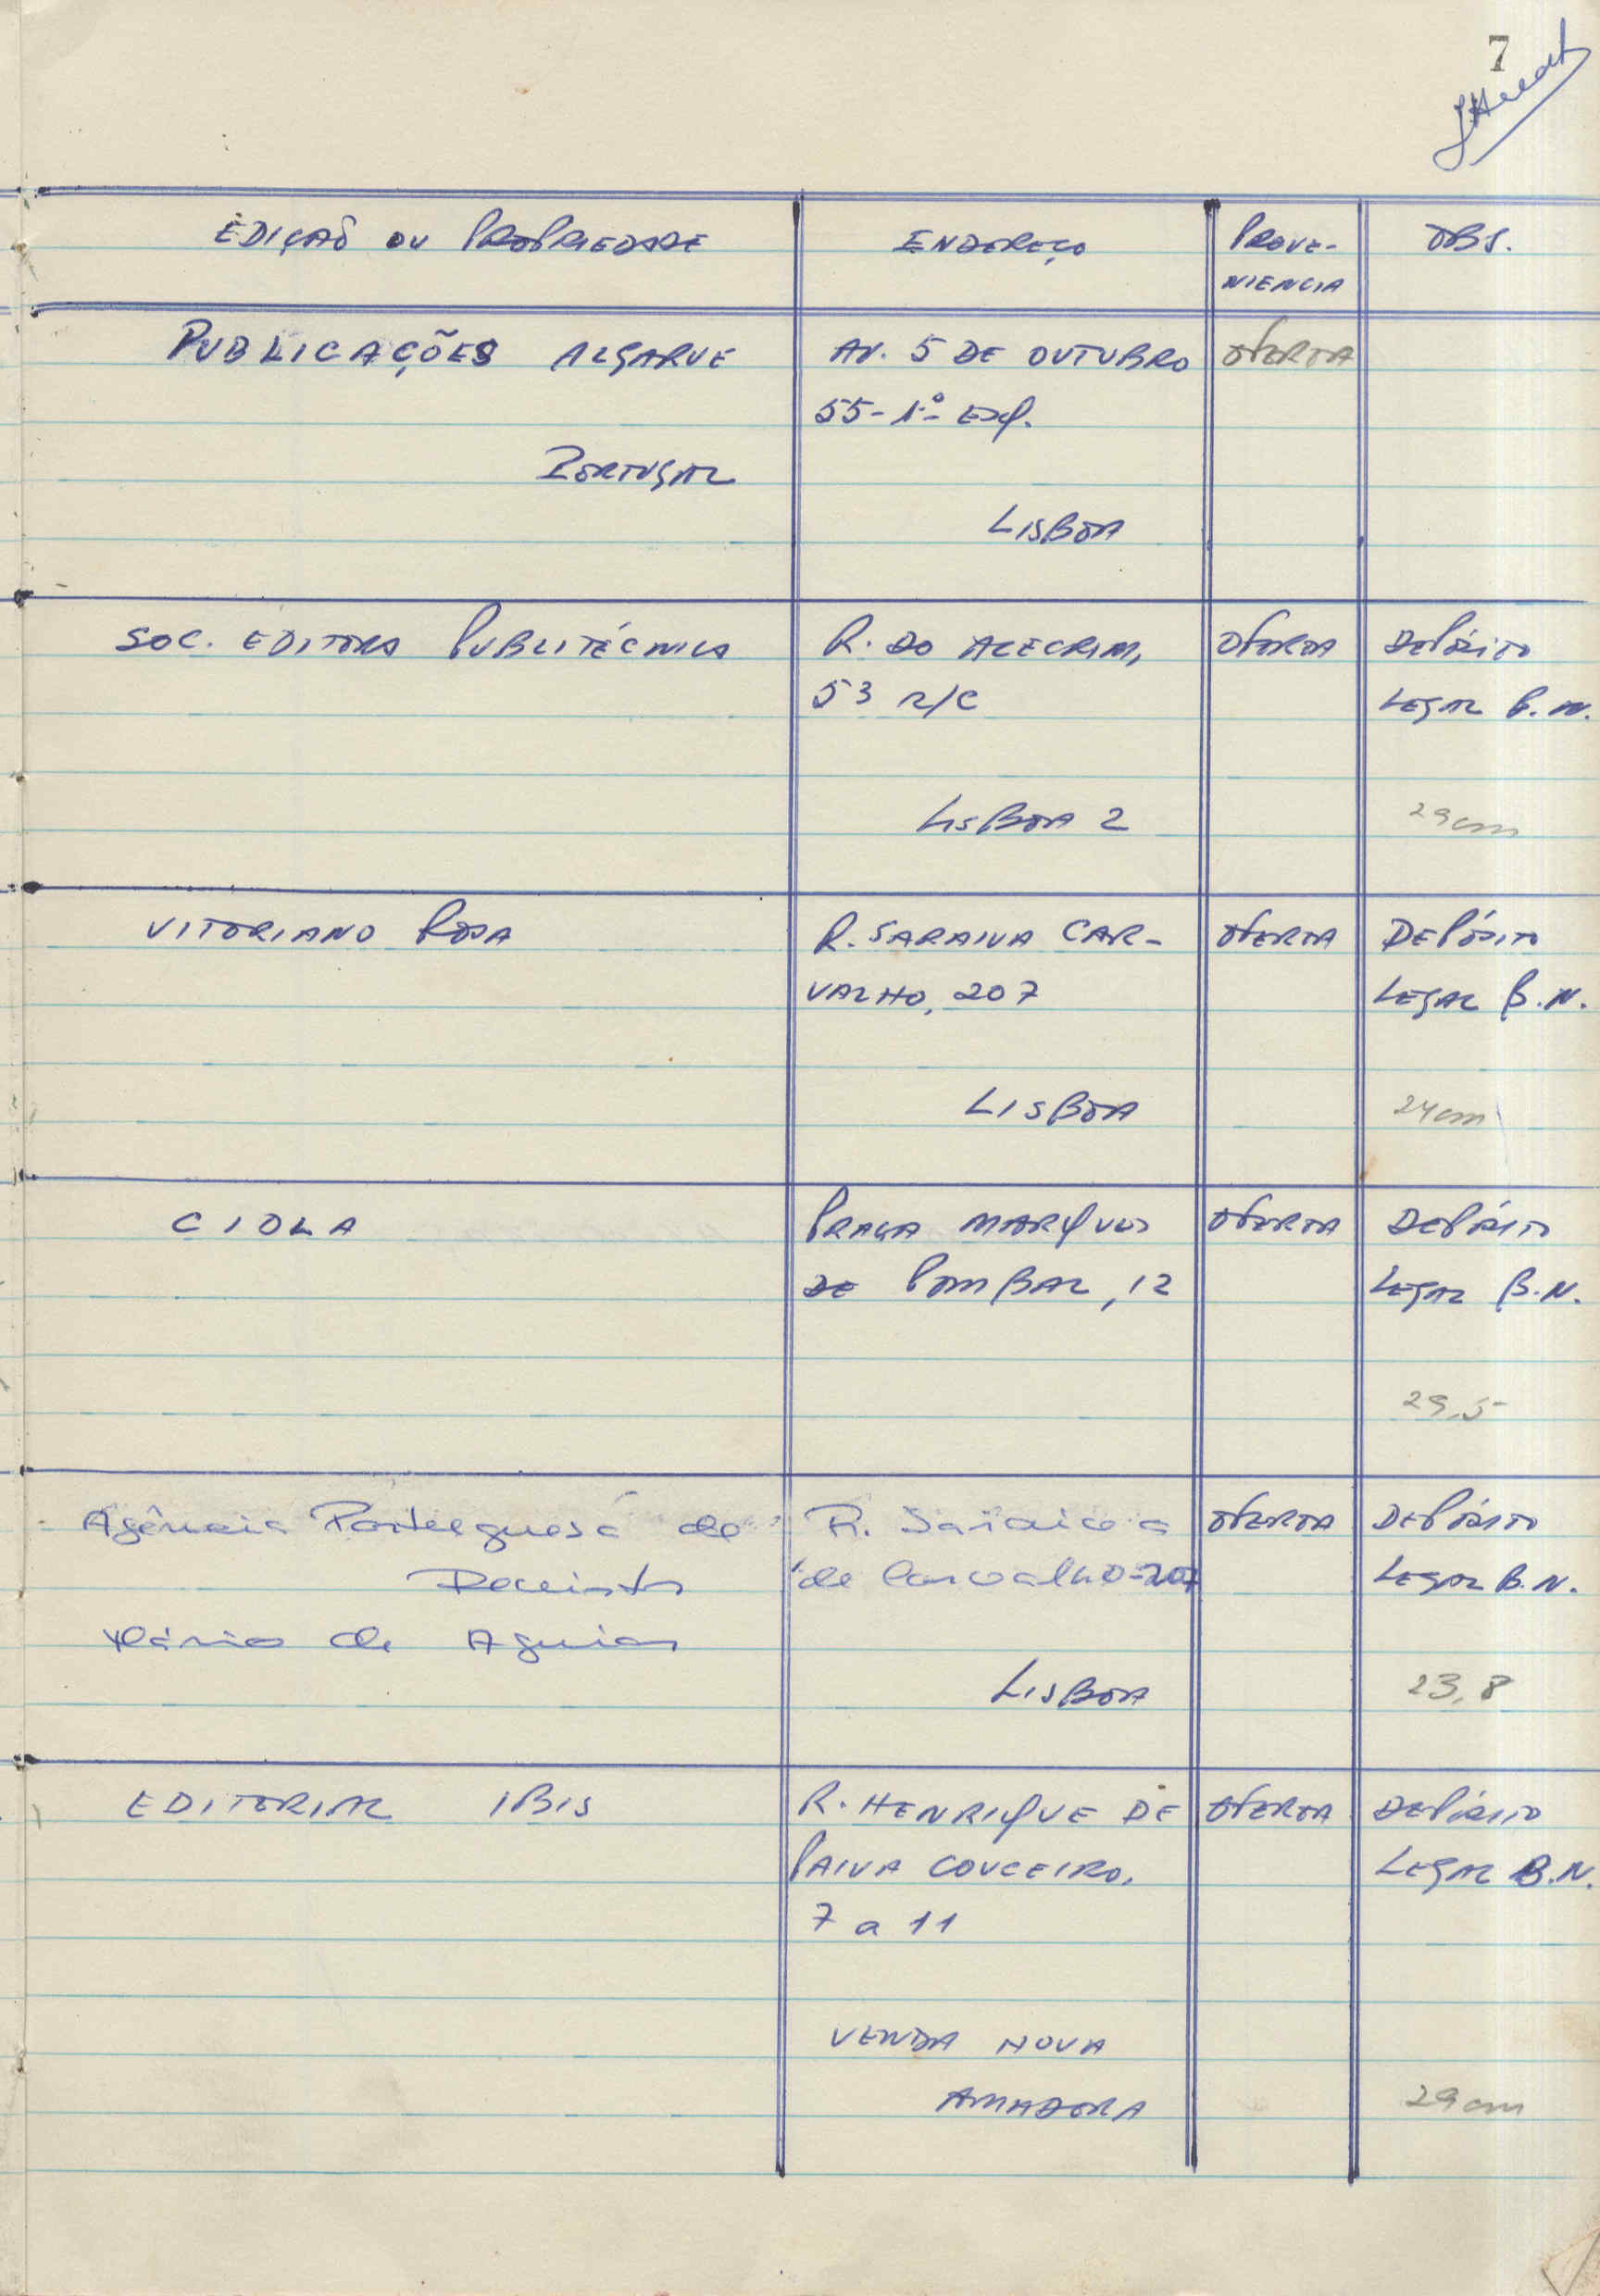 7
EDIÇAÕ OU PROPRIEDADE ENDEREÇO PROVE- OBS.
NIENCIA
PUBLICAÇÕES ALGARVE AV. 5 DE OUTUBRO OFERTA
55-1º ESQ.
PORTUGAL
LISBOA
SOC. EDITORA PUBLITÉCNICA R. DO ALECRIM, OFERTA DEPÓSITO
53 R/C LEGAL B.N.
LISBOA 2 29cm
VITORIANO ROSA R. SARAIVA CAR- OFERTA DEPÓSITO
VALHO, 207 LEGAL B.N.
LISBOA 24cm
CIOLA PRAÇA MARQUES OFERTA DEPÓSITO
DE POMBAL, 12 LEGAL B.N.
29,5
Agência Portuguesa de R. Saraiva OFERTA DEPÓSITO
Revistas de Carvalho-207 LEGAL B.N.
Mário de Aguiar
LISBOA 23,8
EDITORIAL IBIS R. HENRIQUE DE OFERTA DEPÓSITO
PAIVA COUCEIRO, LEGAL B.N.
7 a 11
VENDA NOVA
AMADORA 29cm